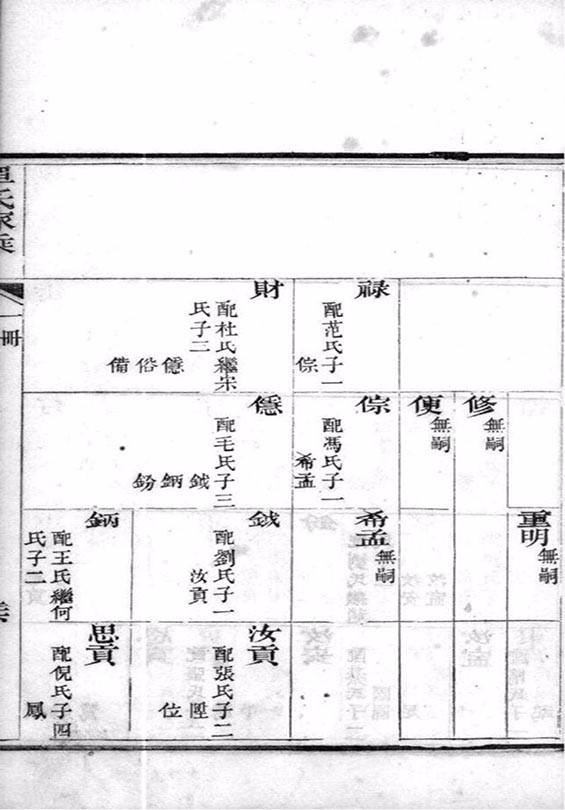 禄
配范氏子一
倧
財
配杜氏繼宋
氏子三
僫 俗 備
修
無嗣
便
無嗣
倧
配馮氏子一
希孟
僫
配毛氏子三
鉞 鈵 鈖
重明
無嗣
希孟
無嗣
鉞
配劉氏子一
汝貢
鈵
配王氏繼何
氏子二
汝貢
配張氏子二
位
思貢
配倪氏子四
鳳
氏家乘
一冊